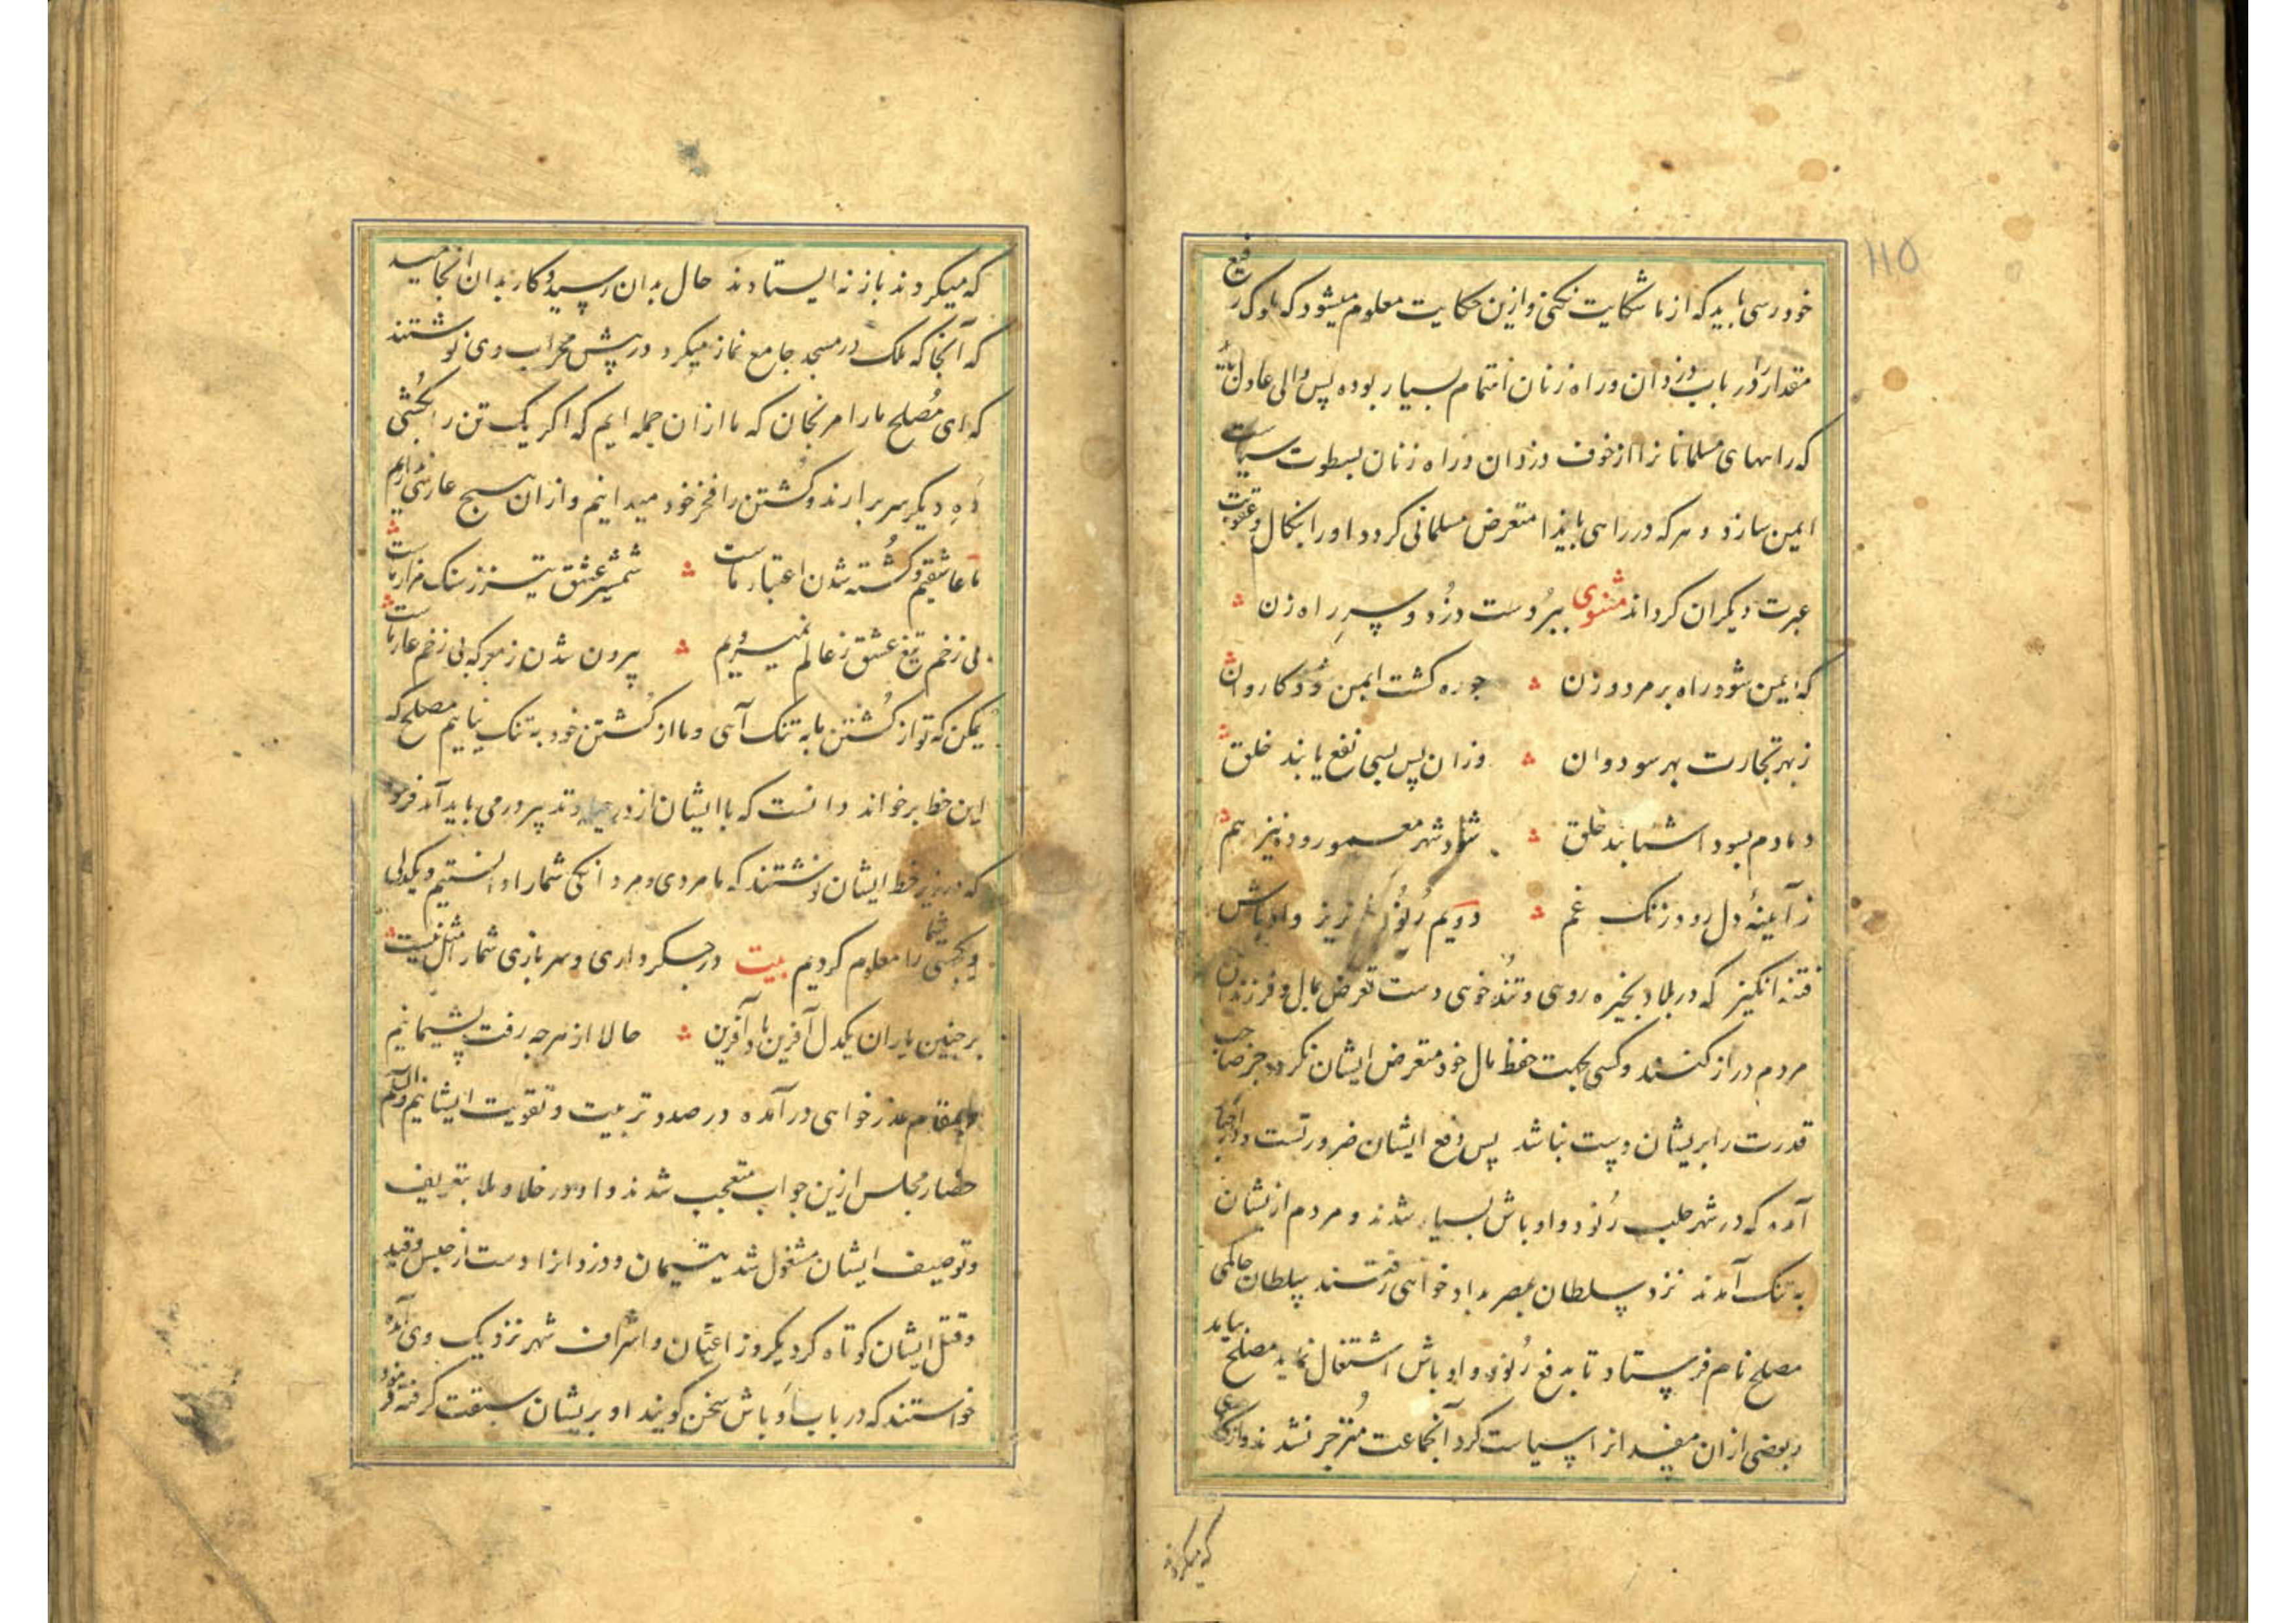 ۱۱۵
خود رسی باید که از ما شکایت نکنی و ازین حکایت معلوم میشود که ملوک رفیع
مقدار را در باب دزدان و راه زنان اهتمام بسیار بوده پس والی عادل باید
که راههای مسلمانانرا از خوف دزدان و راه زنان بسطوت سیاست
ایمن سازد و هر که در راهی بایذا متعرض مسلمانی کردد او را بنکال و عقوبت
عبرت دیکران کرداند مثنوی ببر دست دزد و سر راه زن
که ایمن شود راه بر مرد و زن جو ره کشت ایمن رود کاروان
ز بهر تجارت بهر سو دوان وزان پس بسی نفع یابند خلق
دمادم بسود اشتابند خلق شود شهر معمور و ده نیز هم
ز آیینهٔ دل رود زنک غم دویم رنود خونریز و اوباش
فتنه انکیز که در بلاد بخیره روی و تند خوی دست تعرض بمال و فرزندان
مردم دراز کنند و کسی بجهت حفظ مال خود متعرض ایشان نکردد و جز صاحب
قدرت را بریشان دست نباشد پس دفع ایشان ضرورتست و در اخبار
آمده که در شهر حلب رنود و اوباش بسیار شدند و مردم ازیشان
به تنک آمدند نزد سلطان بمصر بداد خواهی رفتند سلطان حاکمی
مصلح نام فرستاد تا بدفع رنود و اوباش اشتغال نماید مصلح بیاید
و بعضی از ان مفسدانرا سیاست کرد آنجماعت منزجر نشدند و از کاری
که میکردند
که میکردند باز نه ایستادند حال بدان رسید و کار بدان انجامید
که آنجا که ملک در مسجد جامع نماز میکرد در پیش محراب وی نوشتند
که ای مصلح ما را مرنجان که ما از ان جمله ایم که اکر یک تن را بکشی
ده دیکر سر برارند و کشتن را فخر خود میدانیم و از ان هیچ عار نمی داریم
ما عاشقیم و کشته شدن اعتبار ماست شمشیر عشق تیز ز سنک مزار ماست
بی زخم تیغ عشق ز عالم نمیرویم بیرون شدن ز معرکه بی زخم عار ماست
یمکن که تو از کشتن ما به تنک آیی و ما از کشتن خود به تنک نیاییم مصلح که
این خط بر خواند دانست که با ایشان از در حیله و تدبیر در می باید آمد فرمود
که در زیر خط ایشان نوشتند که ما مردی و مردانکی شما را دانستیم و یکدلی
و یکجهتی شما را معلوم کردیم بیت در جسکرداری و سر بازی شما را مثل نیست
بر جنین یاران یکدل آفرین باد آفرین حالا از هر جه رفت پشیمانیم
و بمقام عذر خواهی در آمده در صدد تربیت و تقویت ایشانیم
حضار مجلس ازین جواب متعجب شدند و او در خلا و ملا بتعریف
و توصیف ایشان مشغول شد یتیمان و دزدانرا دست از حبس و قید
و قتل ایشان کوتاه کرد یکروز اعیان و اشراف شهر نزدیک وی آمده
خواستند که در باب اوباش سخن کویند او بریشان سبقت کرفته فرمود